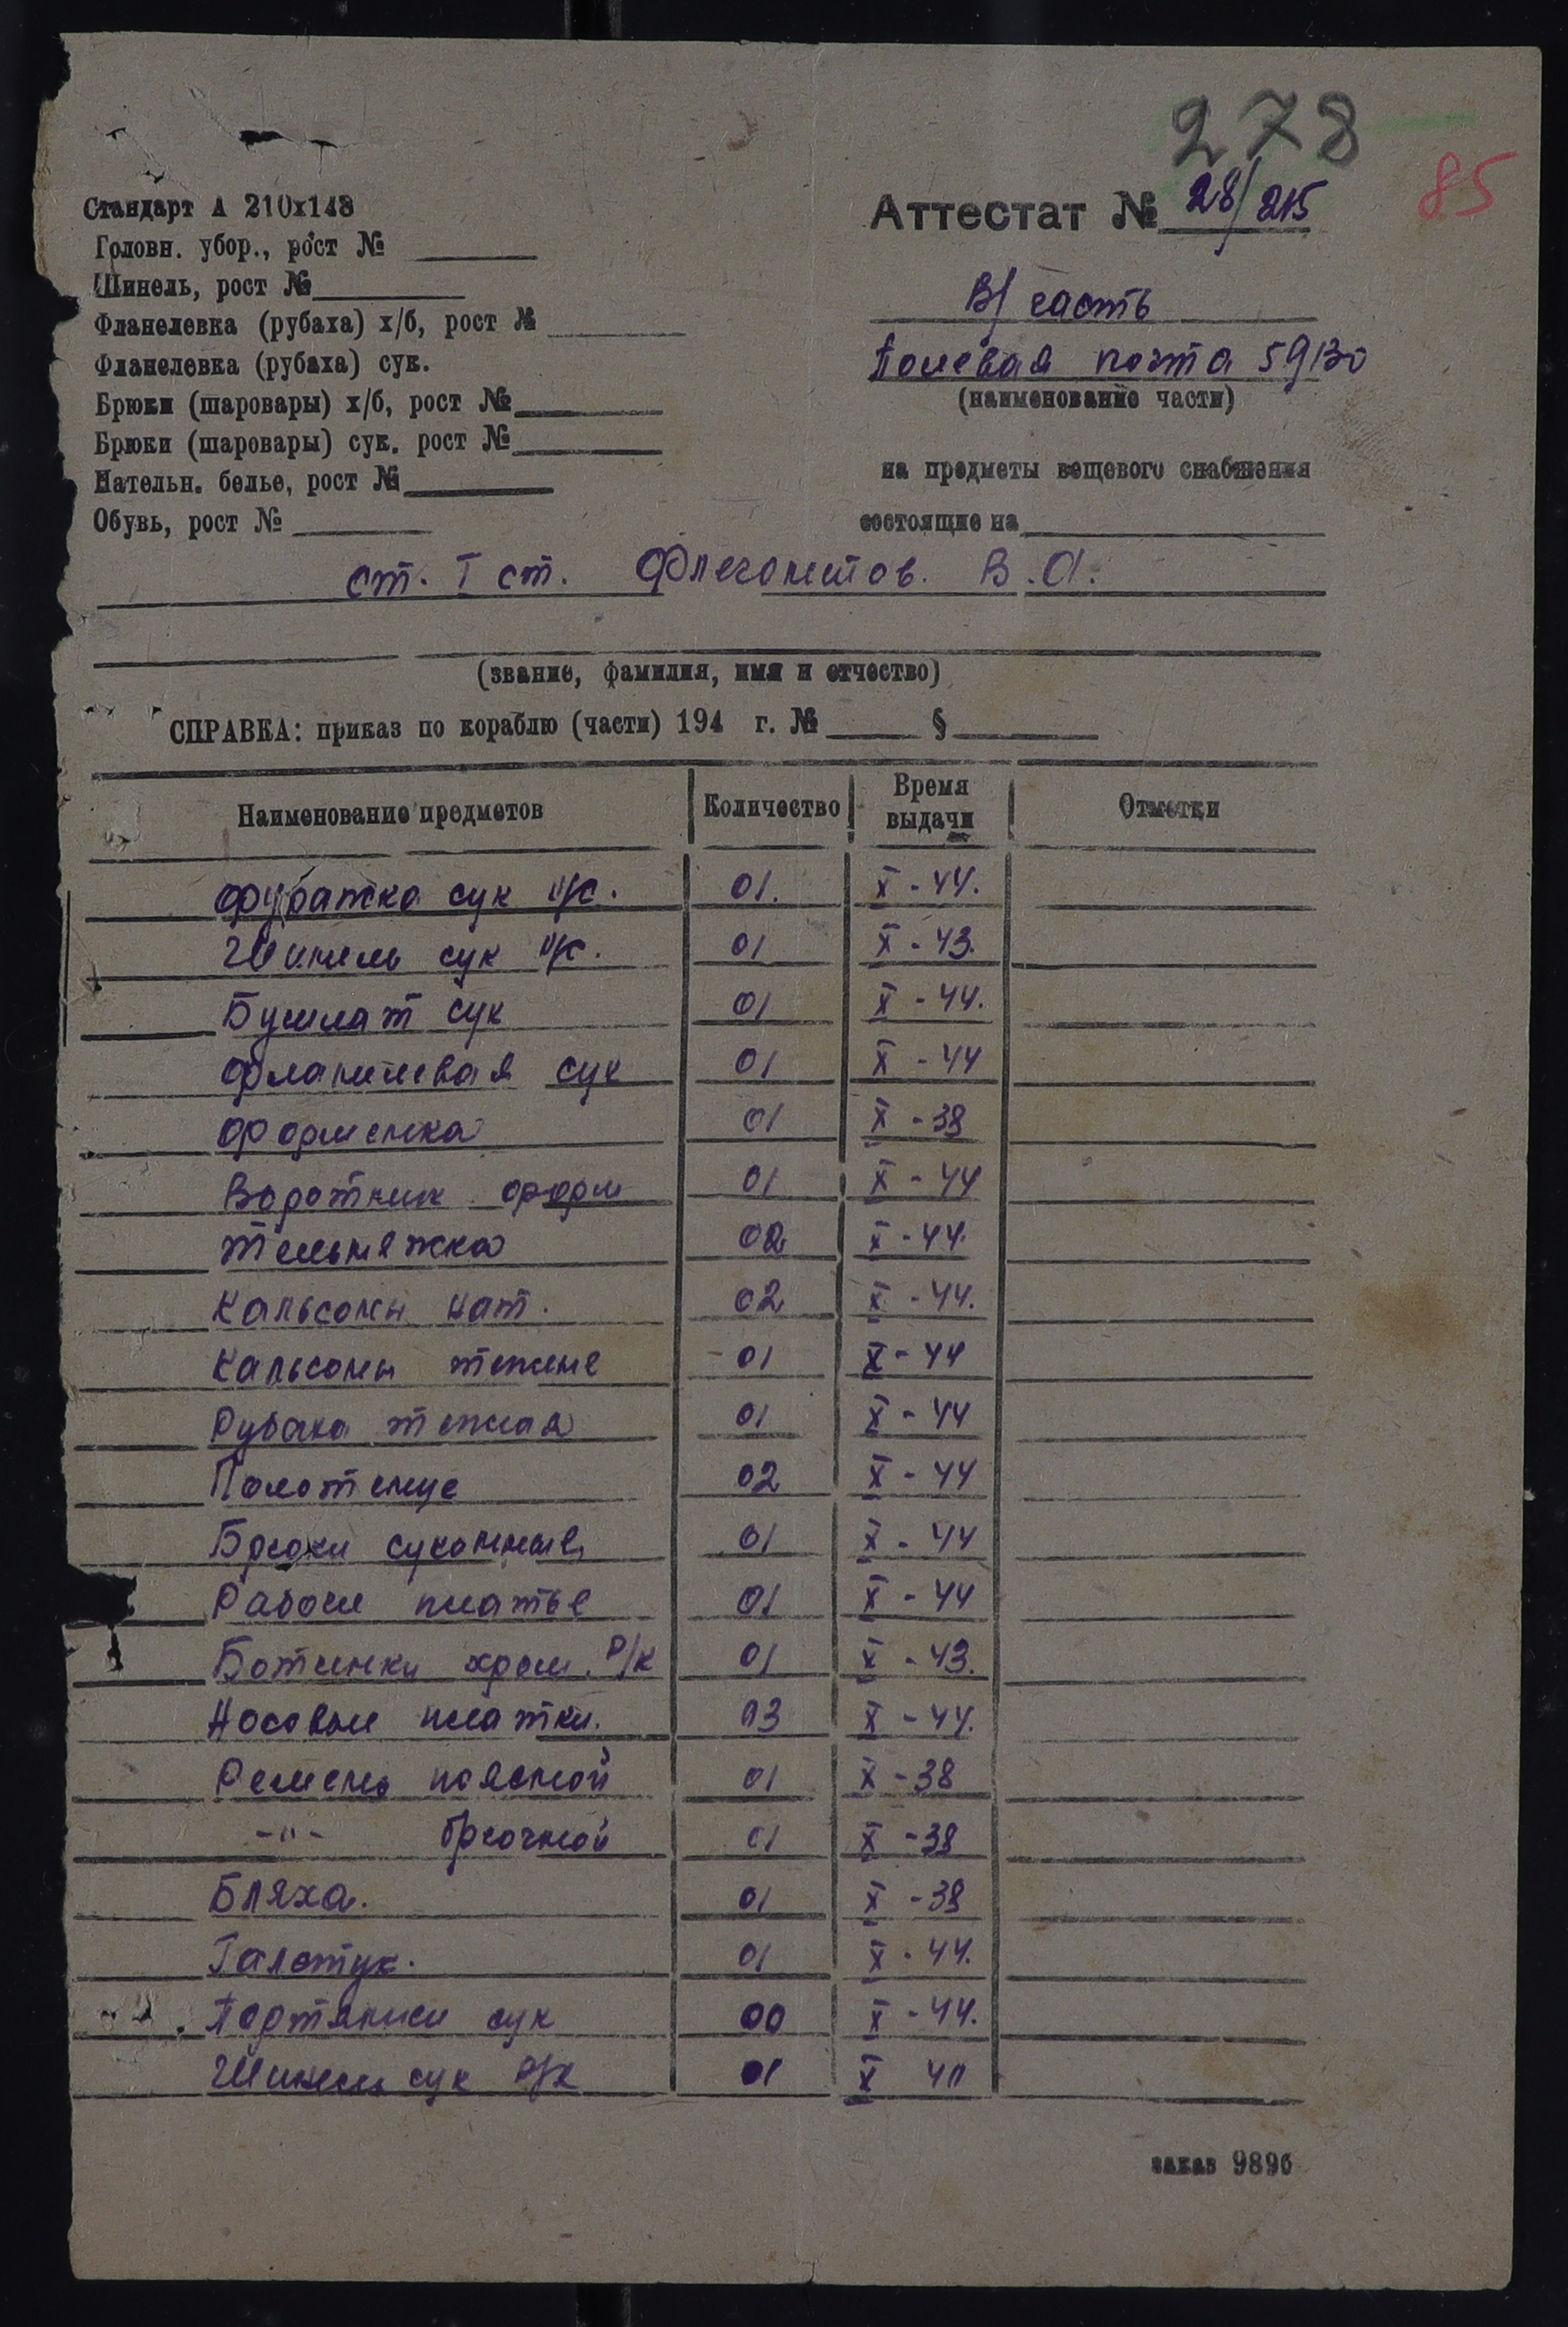 278
85
Стандарт А 210х148
Головн. убор., рост №
Шинель, рост №
Фланелевка (рубаха) х/б, рост №
Фланелевка (рубаха) сук.
Брюки (шаровары) х/б, рост №
Брюки (шаровары) сук. рост №
Нательн. белье, рост №
Обувь, рост №
Аттестат № 28/215
В/часть
Полевая почта 59130
(наименование части)
на предметы вещевого снабжения
состоящие на
ст. I ст. Флегонтов. В.А.
(звание, фамилия, имя и отчество)
СПРАВКА: приказ по кораблю (части) 194 г. № §
Наименование предметов Количество Время выдачи Отметки
Фуражка сук н/с. 01. X - 44.
Шинель сук н/с. 01 X - 43.
Бушлат сук 01 X - 44.
Фланелевая сук 01 X - 44
Форменка 01 X - 38
Воротник форм 01 X - 44
Тельняжка 02 X - 44.
Кальсоны нат. 02 X - 44.
Кальсоны тежне 01 X - 44
Рубаха тежная 01 X - 44
Полотенце 02 X - 44
Брюки суконные 01 X - 44
Рабоче платье 01 X - 44
Ботинки хром. Р/к 01 X - 43.
Носовые платки. 03 X - 44.
Ремень поясной 01 X - 38
-"- брючной 01 X - 38
Бляха. 01 X - 38
Галстук. 01 X - 44.
Портянки сук 00 X - 44.
Шинель сук Р/к 01 X 40
заказ 9896